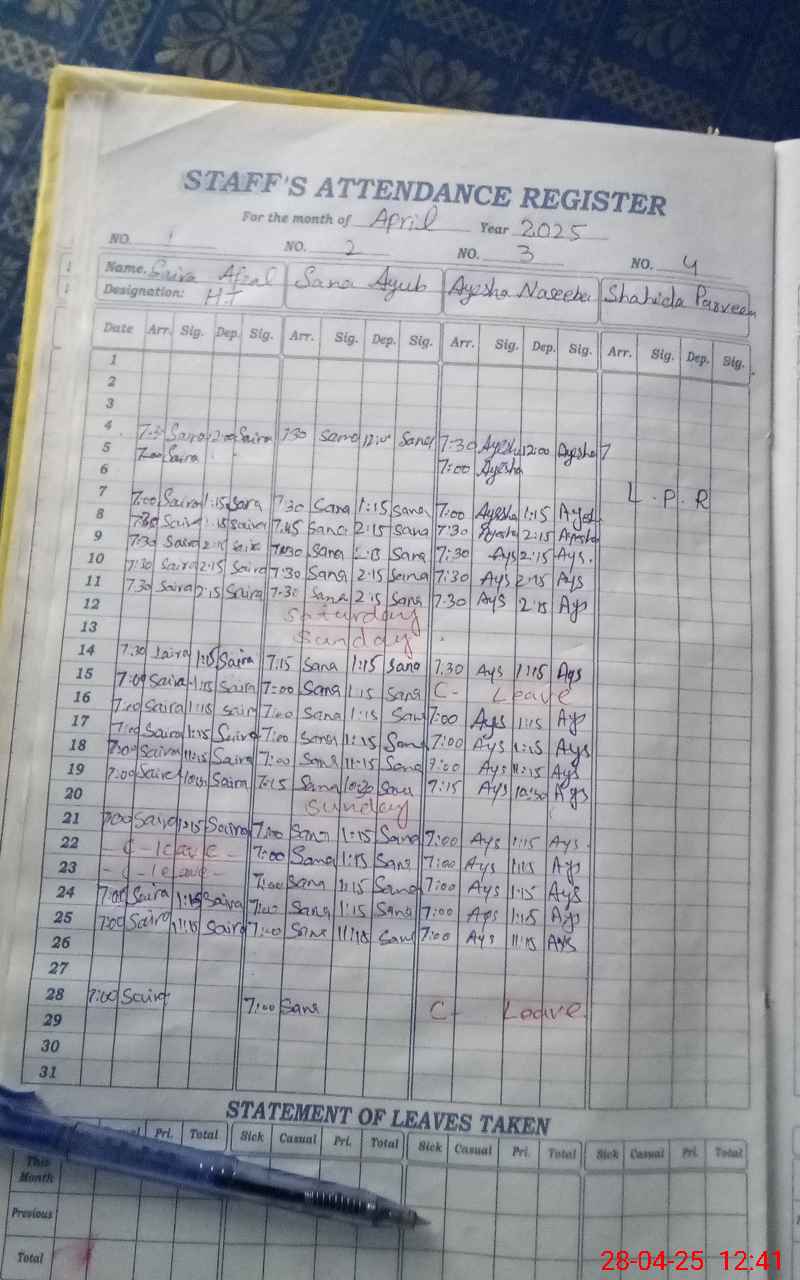 STAFF'S ATTENDANCE REGISTER
For the month of April Year 2025
NO. 1 NO. 2 NO. 3 NO. 4
Name. Saira Afzal Sana Ayub Ayesha Naseeba Shahida Parveen
Designation: HT
Date Arr. Sig. Dep. Sig. Arr. Sig. Dep. Sig. Arr. Sig. Dep. Sig. Arr. Sig. Dep. Sig.
1
2
3
4 7:30 Saira 12:00 Saira 7:30 Sana 12:00 Sana 7:30 Ayesha 12:00 Ayesha
5 7:00 Saira 7:00 Ayesha
6
7 7:00 Saira 1:15 Saira 7:30 Sana 1:15 Sana 7:00 Ayesha 1:15 L.P.R
8 7:30 Saira 1:15 Saira 7:45 Sana 2:15 Sana 7:30 Ayesha 2:15 Ayesha
9 7:30 Saira 2:15 7:30 Sana Sana 7:30 Ays 2:15 Ays.
10 7:30 Saira 2:15 Saira 7:30 Sana 2:15 Sana 7:30 Ays 2:15 Ays
11 7:30 Saira 2:15 Saira 7:30 Sana 2:15 Sana 7:30 Ays 2:15 Ays
12 Saturday
13 Sunday
14 7:30 Saira 1:15 Saira 7:15 Sana 1:15 Sana 7:30 Ays 1:15 Ays
15 7:00 Saira 1:15 Saira 7:00 Sana 1:15 Sana C- Leave
16 7:00 Saira 1:15 Saira 7:00 Sana 1:15 Sana 7:00 Ays 1:15 Ays
17 7:00 Saira 1:15 Saira 7:00 Sana 1:15 Sana 7:00 Ays 1:15 Ays
18 7:00 Saira 11:15 Saira 7:00 Sana 11:15 Sana 7:00 Ays 11:15 Ays
19 7:00 Saira Saira 7:15 Sana 10:30 Sana 7:15 Ays 10:30 Ays
20 Sunday
21 7:00 Saira 1:15 Saira 7:00 Sana 1:15 Sana 7:00 Ays 1:15 Ays
22 - C - leave - 7:00 Sana 1:15 Sana 7:00 Ays 1:15 Ays
23 - C - leave - 7:00 Sana 1:15 Sana 7:00 Ays 1:15 Ays
24 7:00 Saira 1:15 Saira 7:00 Sana 1:15 Sana 7:00 Ays 1:15 Ays
25 7:00 Saira 11:15 Saira 7:00 Sana 11:15 Sana 7:00 Ays 11:15 Ays
26
27
28 7:00 Saira 7:00 Sana C- Leave
29
30
31
STATEMENT OF LEAVES TAKEN
Pri. Total Sick Casual Pri. Total Sick Casual Pri. Total Sick Casual Pri. Total
This Month
Previous
Total
28-04-25 12:41